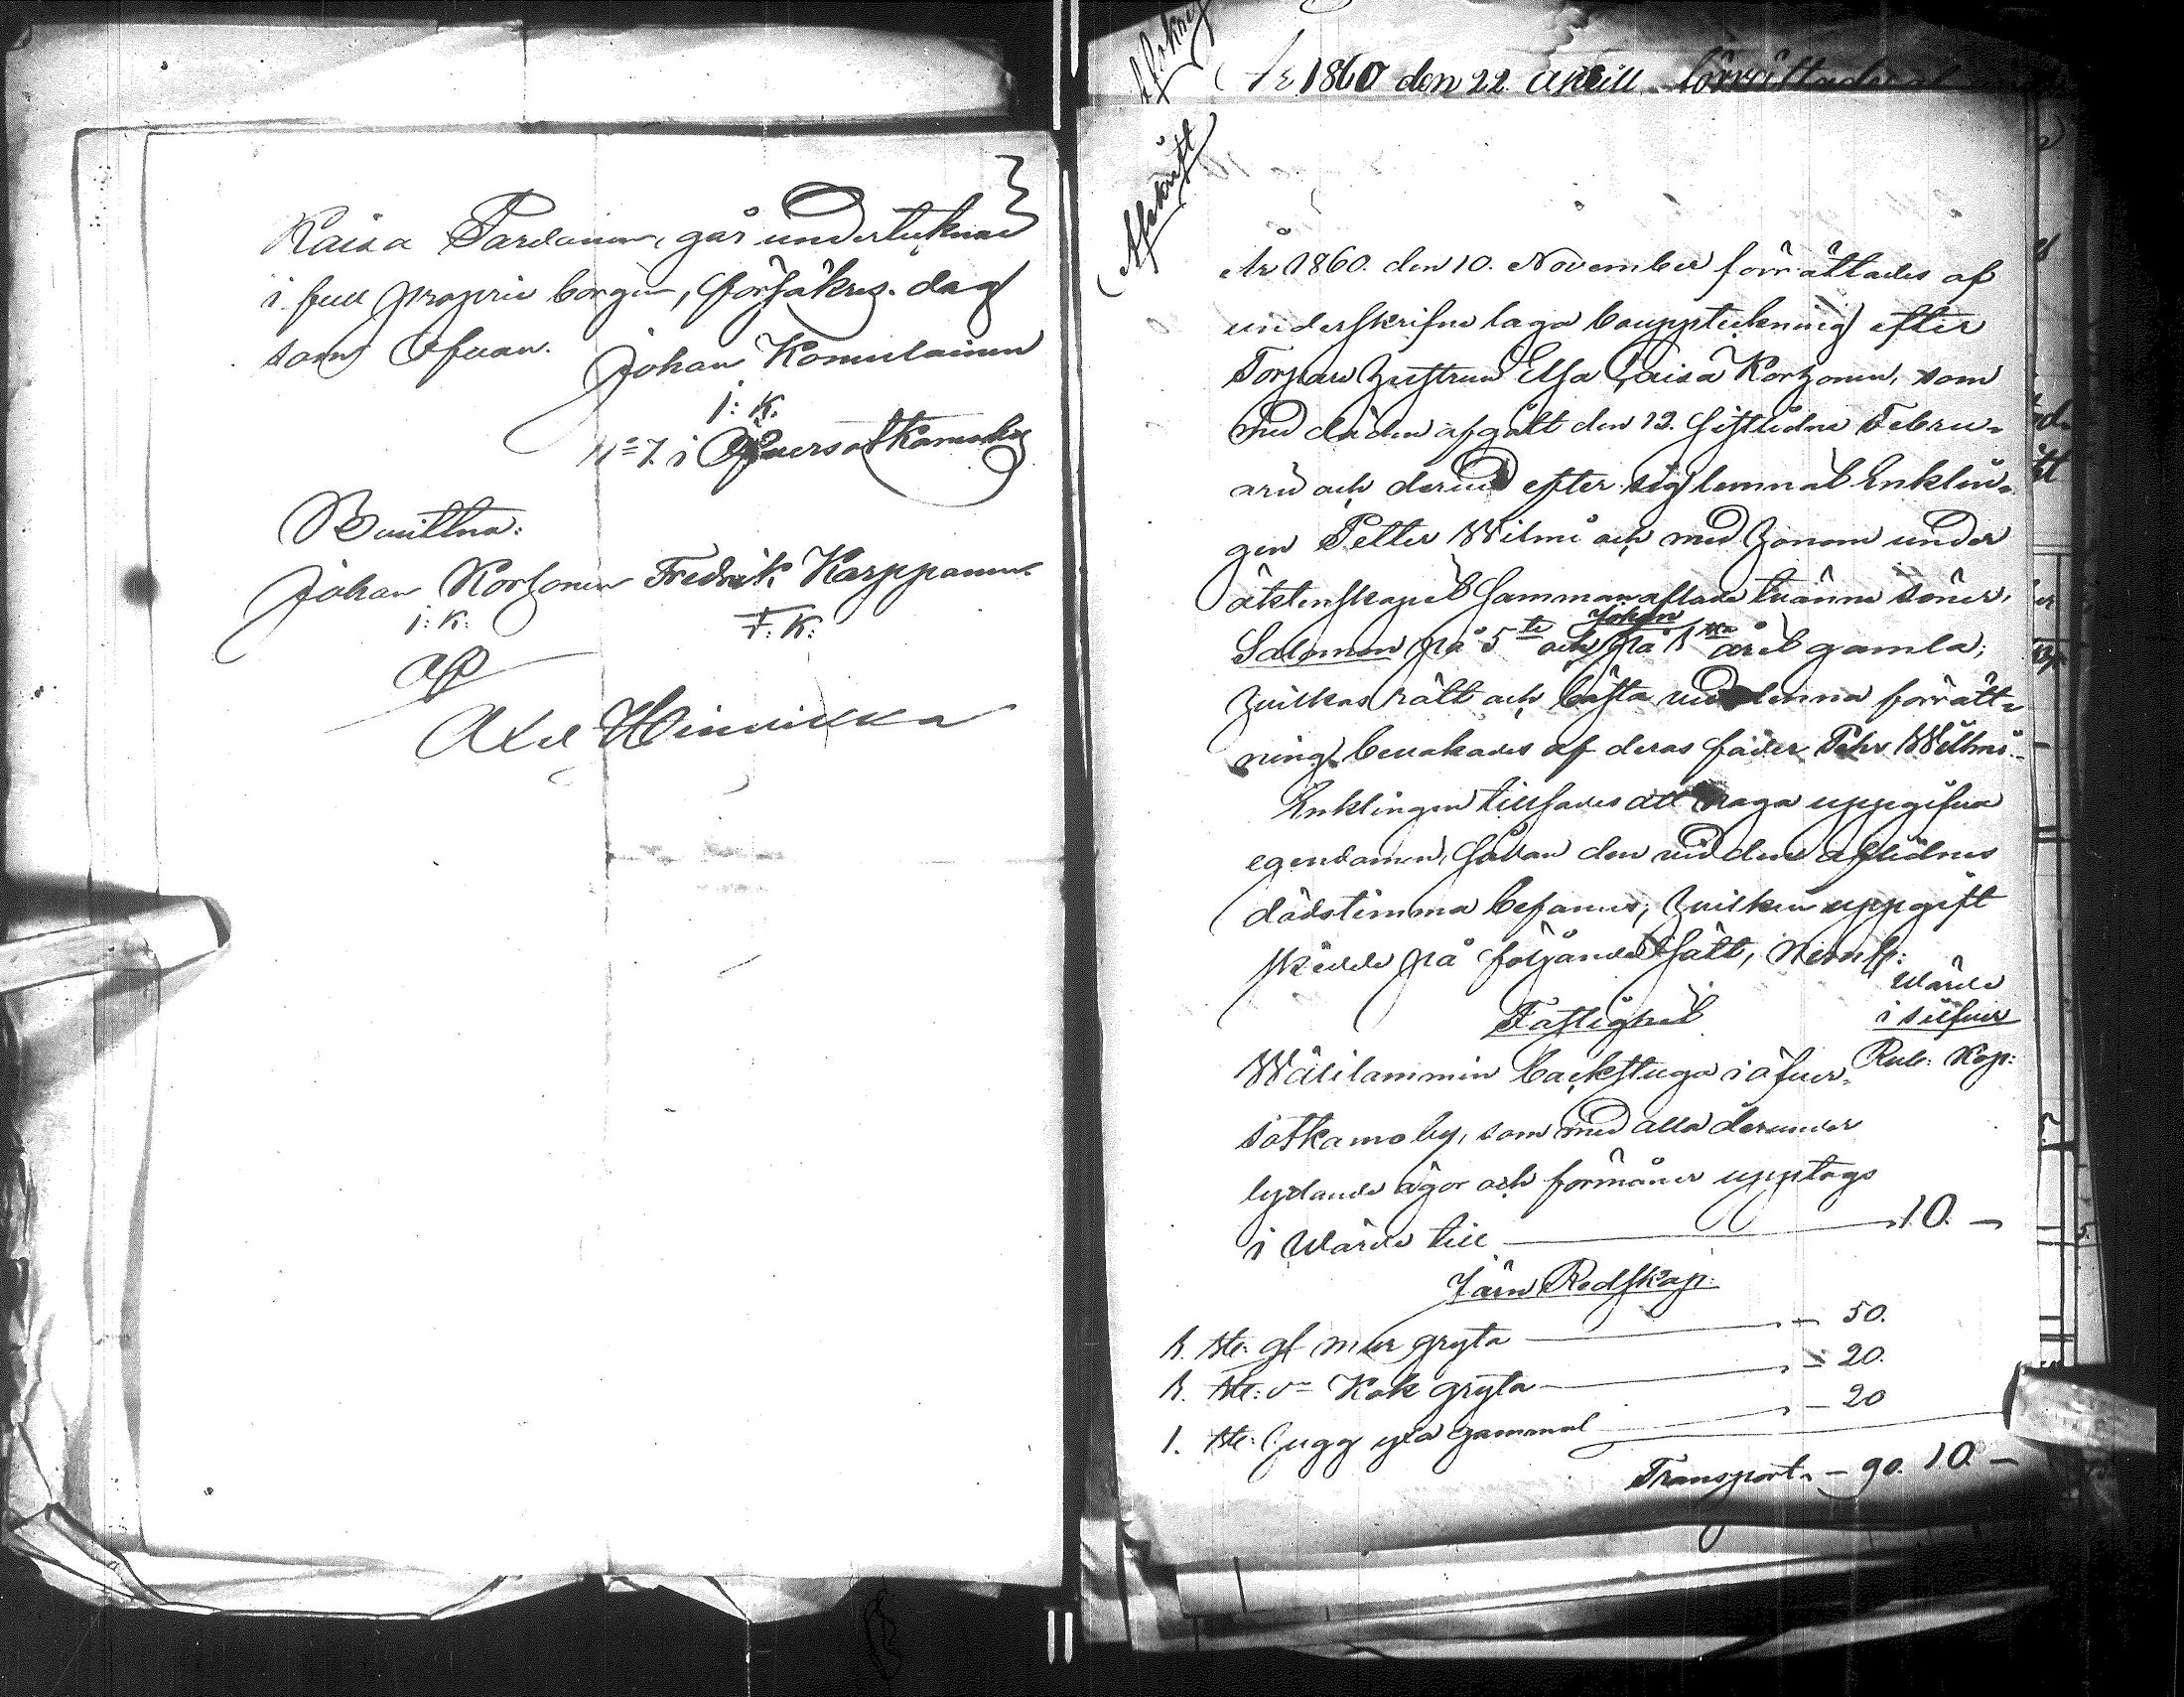 Kaisa Pardainen, går undertecknad
i full proprie borgen, försäkras. dag
som Ofvan.
Johan Komulainen
J: K.
No 7. i Öfversotkamoby
Bevittna:
Johan Korhonen Fredrik Karppanen
J: K: F: K:
Axel Hinnukka
Afskrift
År 1860 den 22 Aprill förrättades af
Afskrift
År 1860. den 10. November förrättades af
underskrifne laga bouppteckning efter
Torpare hustrun Elsa Caisa Korhonen, som
med döden afgått den 12. sistledne Febru-
arii och dervid efter sig lemnat Enklin-
gen Petter Wilmi och med honom under
äktenskapet sammanaflade tvänne söner,
Salomon på 5te och Johan på 1sta året gamla;
hvilkas rätt och bästa vid denna förrätt-
ning bevakades af deras fader Pehr Willmi.
Enklingen tillsades att noga uppgifva
egendomen, sådan den vid den aflidnes
dödstimma befanns; hvilken uppgift
skedde på följande sätt, Neml:
Wärde
i silfver
Fastighet
Rub: Kop:
Wälilammin backstuga i öfver-
sotkamo by, som med alla derunder
lydande ägor och förmåner upptogs
i Wärde till 10. —
Järn Redskap:
1. st: gl mur gryta — 50.
1. st: dn Kok gryta — 20.
1. st: hugg yxa gammal — 20
Transport. — 90. 10. —